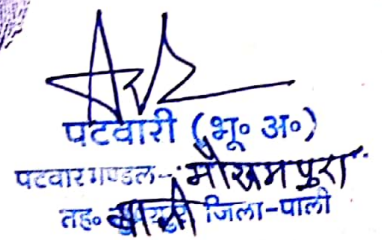 पटवारी (भू० अ०)
पटवार मण्डल-: मोखमपुरा
तह० जिला-पाली